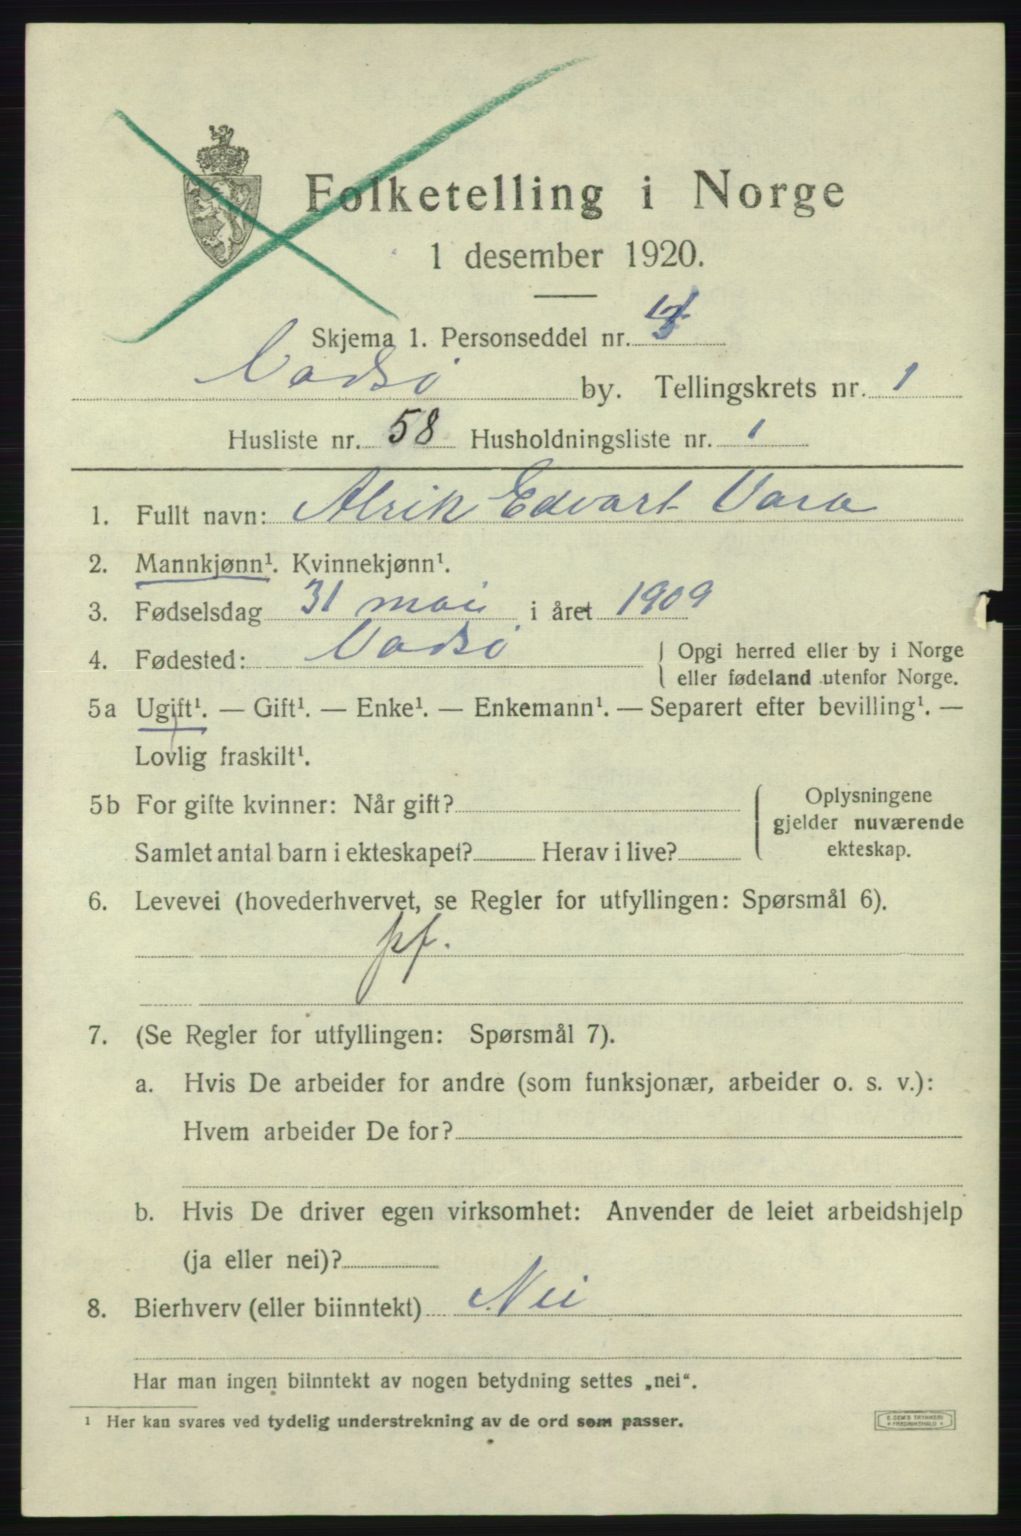 Folketelling i Norge
1 desember 1920.
Skjema 1. Personseddel nr.
Vadsø by. Tellingskrets nr. 1
Husliste nr. 58 Husholdningsliste nr. 1
1. Fullt navn: Alrik Edvart Vara
2. Mannkjønn¹. Kvinnekjønn¹.
3. Fødselsdag 31 mai i året 1909
4. Fødested: Vadsø { Opgi herred eller by i Norge
eller fødeland utenfor Norge.
5a Ugift¹. — Gift¹. — Enke¹. — Enkemann¹. — Separert efter bevilling¹. —
Lovlig fraskilt¹.
5b For gifte kvinner: Når gift? { Oplysningene
gjelder nuværende
Samlet antal barn i ekteskapet? Herav i live? ekteskap.
6. Levevei (hovederhvervet, se Regler for utfyllingen: Spørsmål 6).
pf.
7. (Se Regler for utfyllingen: Spørsmål 7).
a. Hvis De arbeider for andre (som funksjonær, arbeider o. s. v.):
Hvem arbeider De for?
b. Hvis De driver egen virksomhet: Anvender de leiet arbeidshjelp
(ja eller nei)?
8. Bierhverv (eller biinntekt) Nei
Har man ingen biinntekt av nogen betydning settes „nei".
¹ Her kan svares ved tydelig understrekning av de ord som passer.